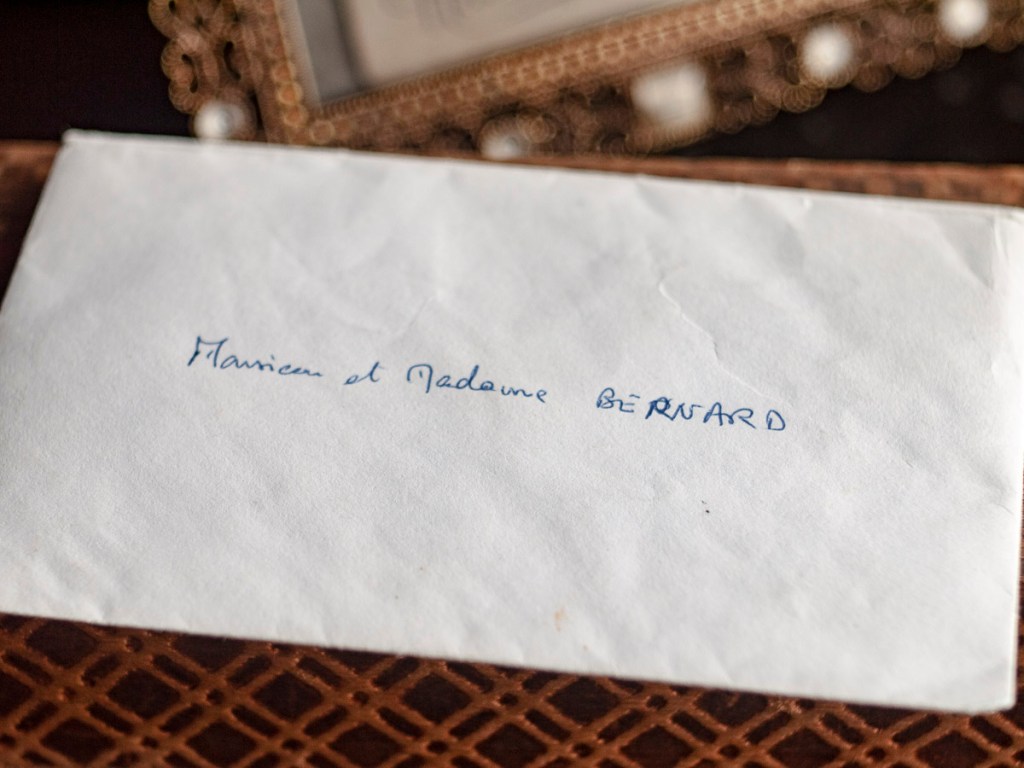 Monsieur et Madame BERNARD